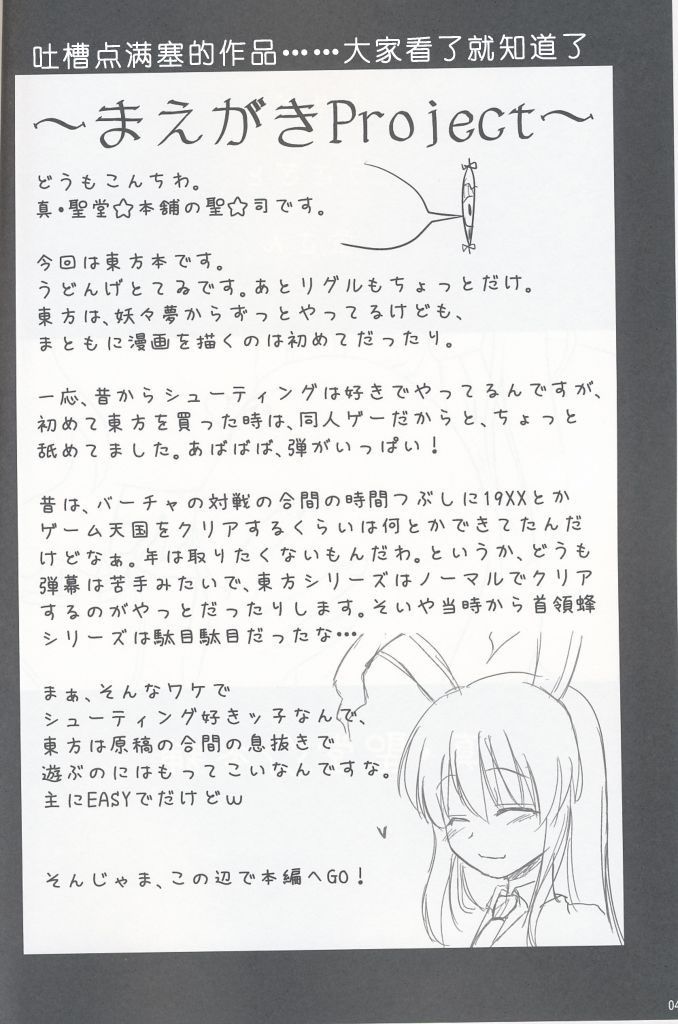 吐槽点满塞的作品……大家看了就知道了
～まえがきProject～
どうもこんちわ。
真・聖堂☆本舗の聖☆司です。
今回は東方本です。
うどんげとてゐです。あとリグルもちょっとだけ。
東方は、妖々夢からずっとやってるけども、
まともに漫画を描くのは初めてだったり。
一応、昔からシューティングは好きでやってるんですが、
初めて東方を買った時は、同人ゲーだからと、ちょっと
舐めてました。あばばば、弾がいっぱい！
昔は、バーチャの対戦の合間の時間つぶしに19XXとか
ゲーム天国をクリアするくらいは何とかできてたんだ
けどなぁ。年は取りたくないもんだわ。というか、どうも
弾幕は苦手みたいで、東方シリーズはノーマルでクリア
するのがやっとだったりします。そいや当時から首領蜂
シリーズは駄目駄目だったな…
まぁ、そんなワケで
シューティング好きッ子なんで、
東方は原稿の合間の息抜きで
遊ぶのにはもってこいなんですな。
主にEASYでだけどw
そんじゃま、この辺で本編へGO！
04